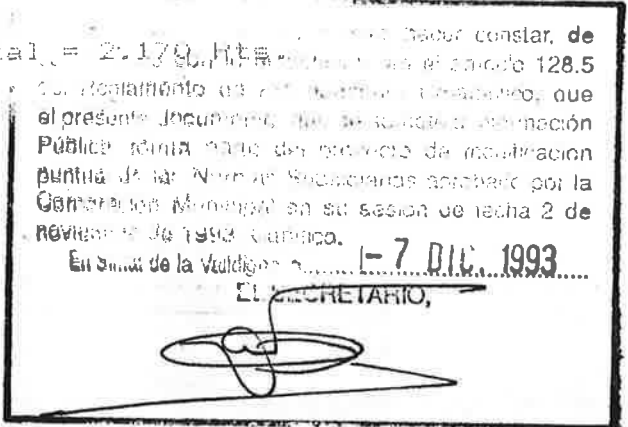 hacer constar, de
al = 2.170 Hts.
el artículo 128.5
del Reglamento de Planeamiento Urbanístico, que
el presente documento, que se somete a Información
Pública forma parte del proyecto de modificación
puntual de las Normas Subsidiarias aprobado por la
Corporación Municipal en su sesión de fecha 2 de
noviembre de 1993. Certifico.
En Simat de la Valldigna a 7 DIC. 1993
EL SECRETARIO,